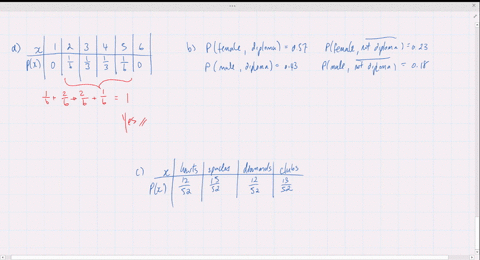 a) x | 1 | 2 | 3 | 4 | 5 | 6
P(x) | 0 | 1/6 | 1/3 | 1/3 | 1/6 | 0
1/6 + 2/6 + 2/6 + 1/6 = 1
Yes //
b) P(female, diploma) = 0.57 P(female, not diploma) = 0.23
P(male, diploma) = 0.43 P(male, not diploma) = 0.18
c) x | hearts | spades | diamonds | clubs
P(x) | 12/52 | 15/52 | 12/52 | 13/52